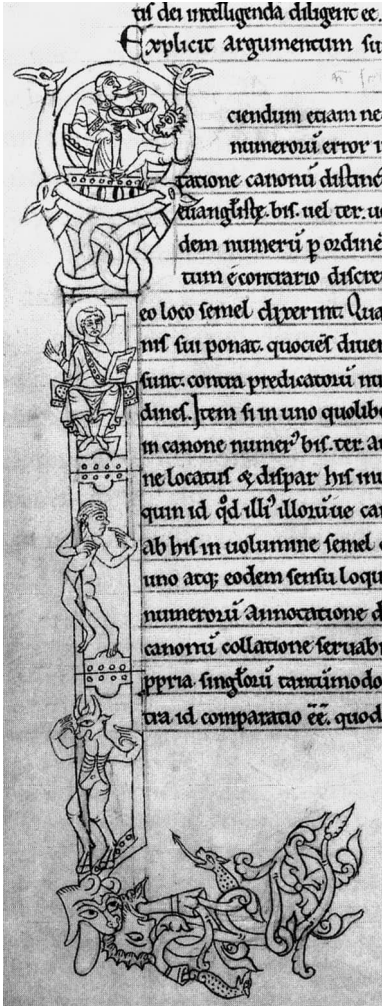 tis dei intelligenda diligenter ēē.
Explicit argumentum su
ciendum etiam ne
numerorū error
tatione canonū distinc
euangl̄istę. bis. uel ter. u
dem numerū p ordinē
tum é contrario discre
eo loco semel dixerint. Qua
nis sui ponat. quociēs diuer
sunt. contra predicatorū nu
dines. Item si in uno quolibe
in canone numerꝰ bis. ter. au
ne locatus & dispar his nu
quin id qd̄ illiꝰ illorū ue can
ab his in uolumine semel
uno atq; eodem sensu loqu
numerorū annotatione d
canonū collatione seruabi
ppria singl̄orū tantūmodo
tra id comparatio ēē. quod